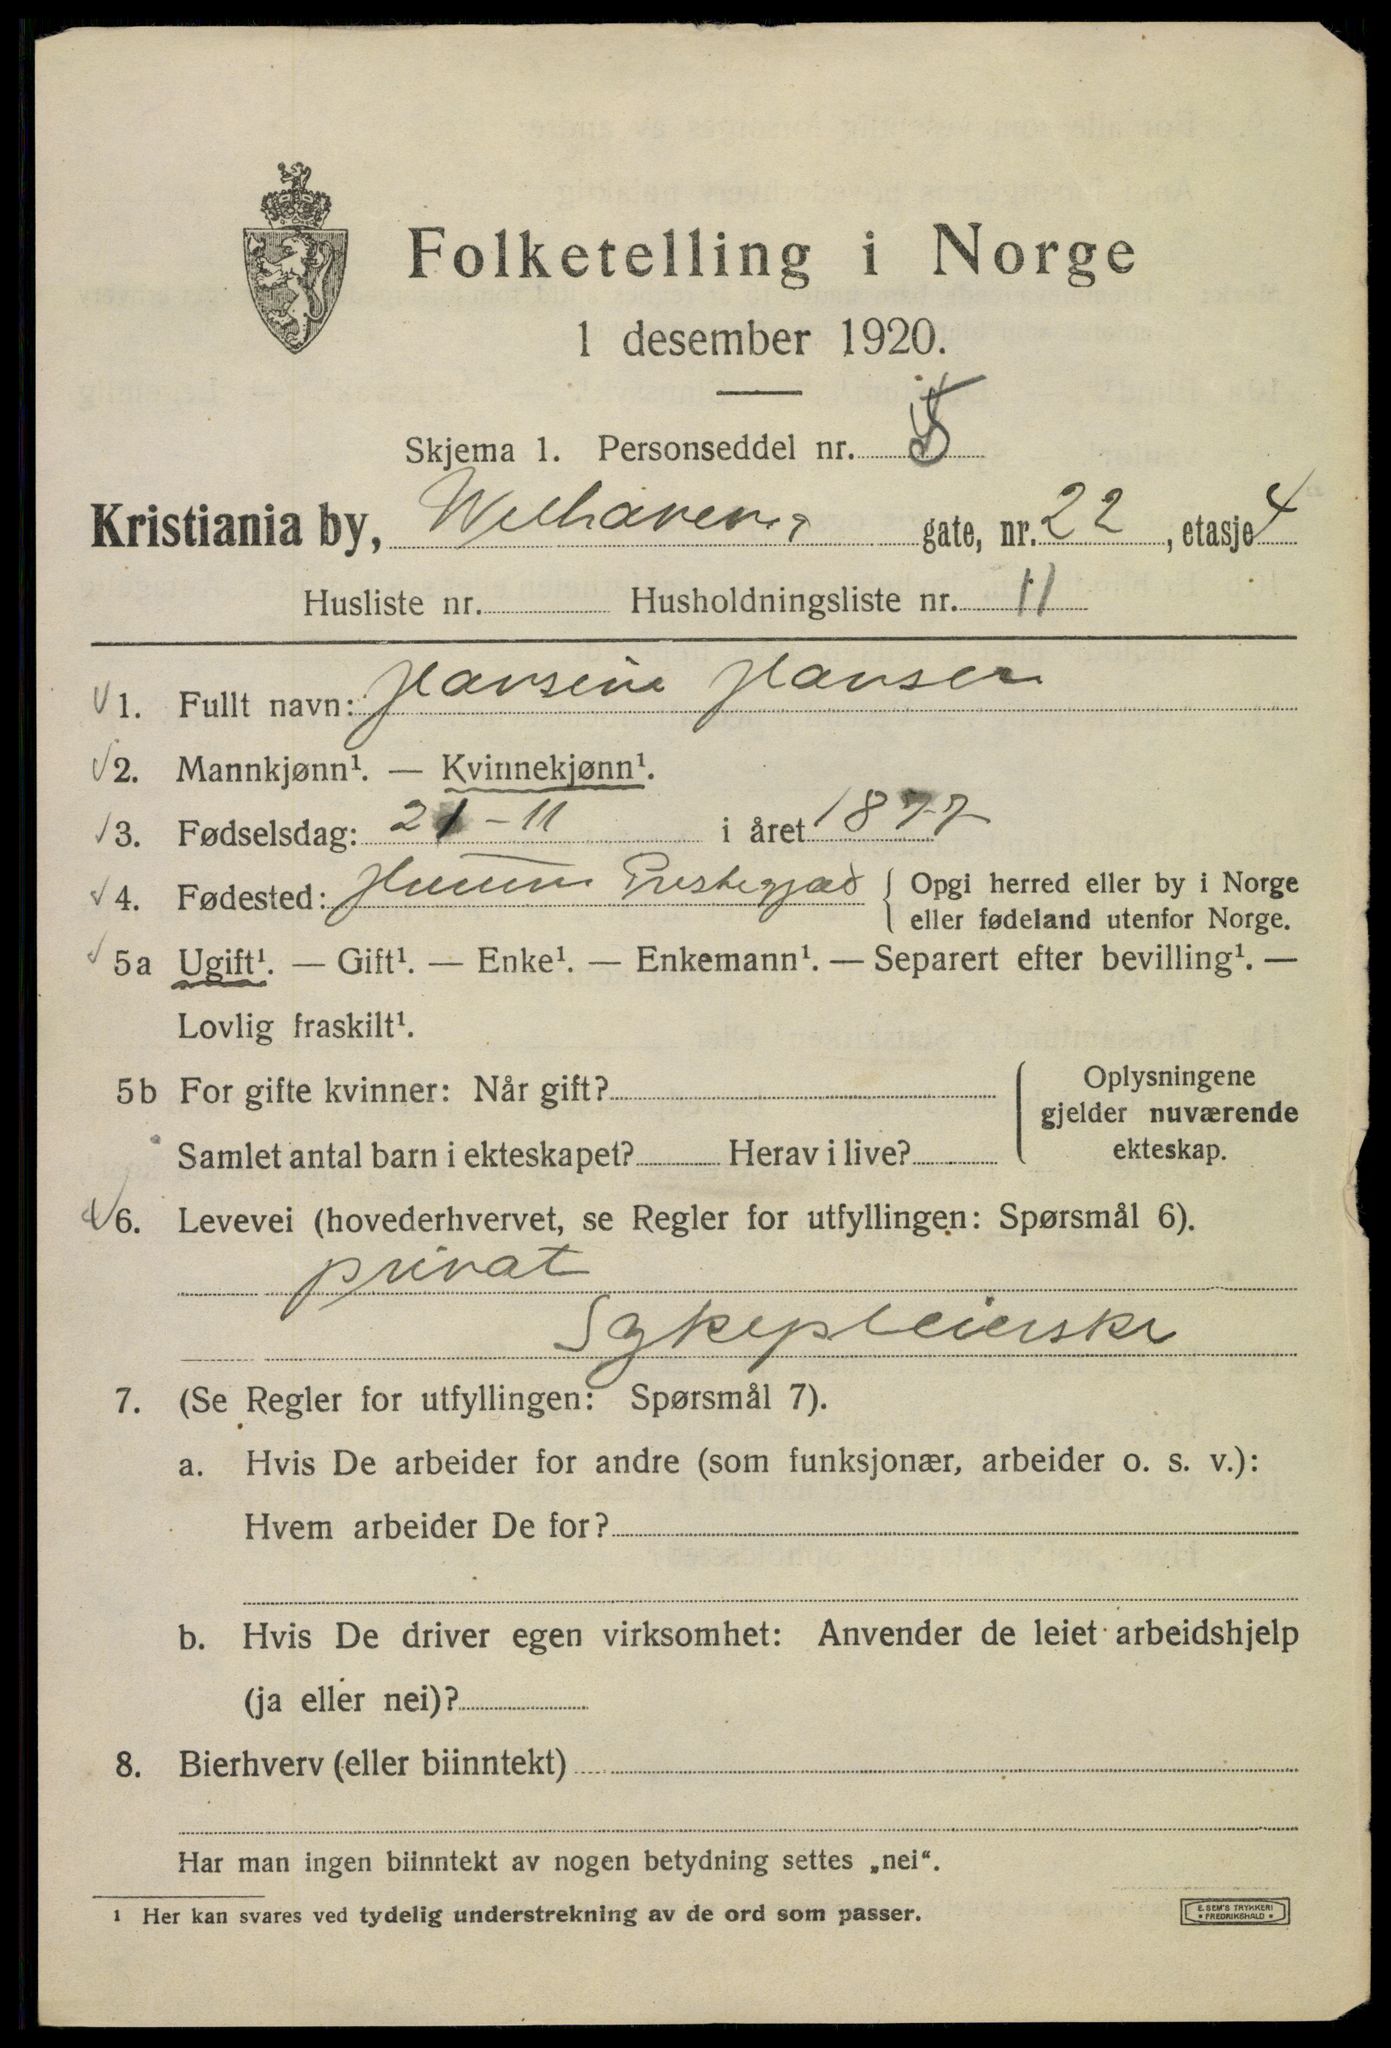 Folketelling i Norge
1 desember 1920.
Skjema 1. Personseddel nr. 5
Kristiania by, Welhavens gate, nr. 22, etasje 4
Husliste nr. Husholdningsliste nr. 11
1. Fullt navn: Hansine Hansen
2. Mannkjønn¹. — Kvinnekjønn¹.
3. Fødselsdag: 21-11 i året 1877
4. Fødested: Prestegjæld { Opgi herred eller by i Norge
eller fødeland utenfor Norge.
5a Ugift¹. — Gift¹. — Enke¹. — Enkemann¹. — Separert efter bevilling¹. —
Lovlig fraskilt¹.
5b For gifte kvinner: Når gift?
Samlet antal barn i ekteskapet? Herav i live?
Oplysningene
gjelder nuværende
ekteskap.
6. Levevei (hovederhvervet, se Regler for utfyllingen: Spørsmål 6).
privat
Sykepleierske
7. (Se Regler for utfyllingen: Spørsmål 7).
a. Hvis De arbeider for andre (som funksjonær, arbeider o. s. v.):
Hvem arbeider De for?
b. Hvis De driver egen virksomhet: Anvender de leiet arbeidshjelp
(ja eller nei)?
8. Bierhverv (eller biinntekt)
Har man ingen biinntekt av nogen betydning settes „nei“.
¹ Her kan svares ved tydelig understrekning av de ord som passer.
E. SEM'S TRYKKERI
FREDRIKSHALD